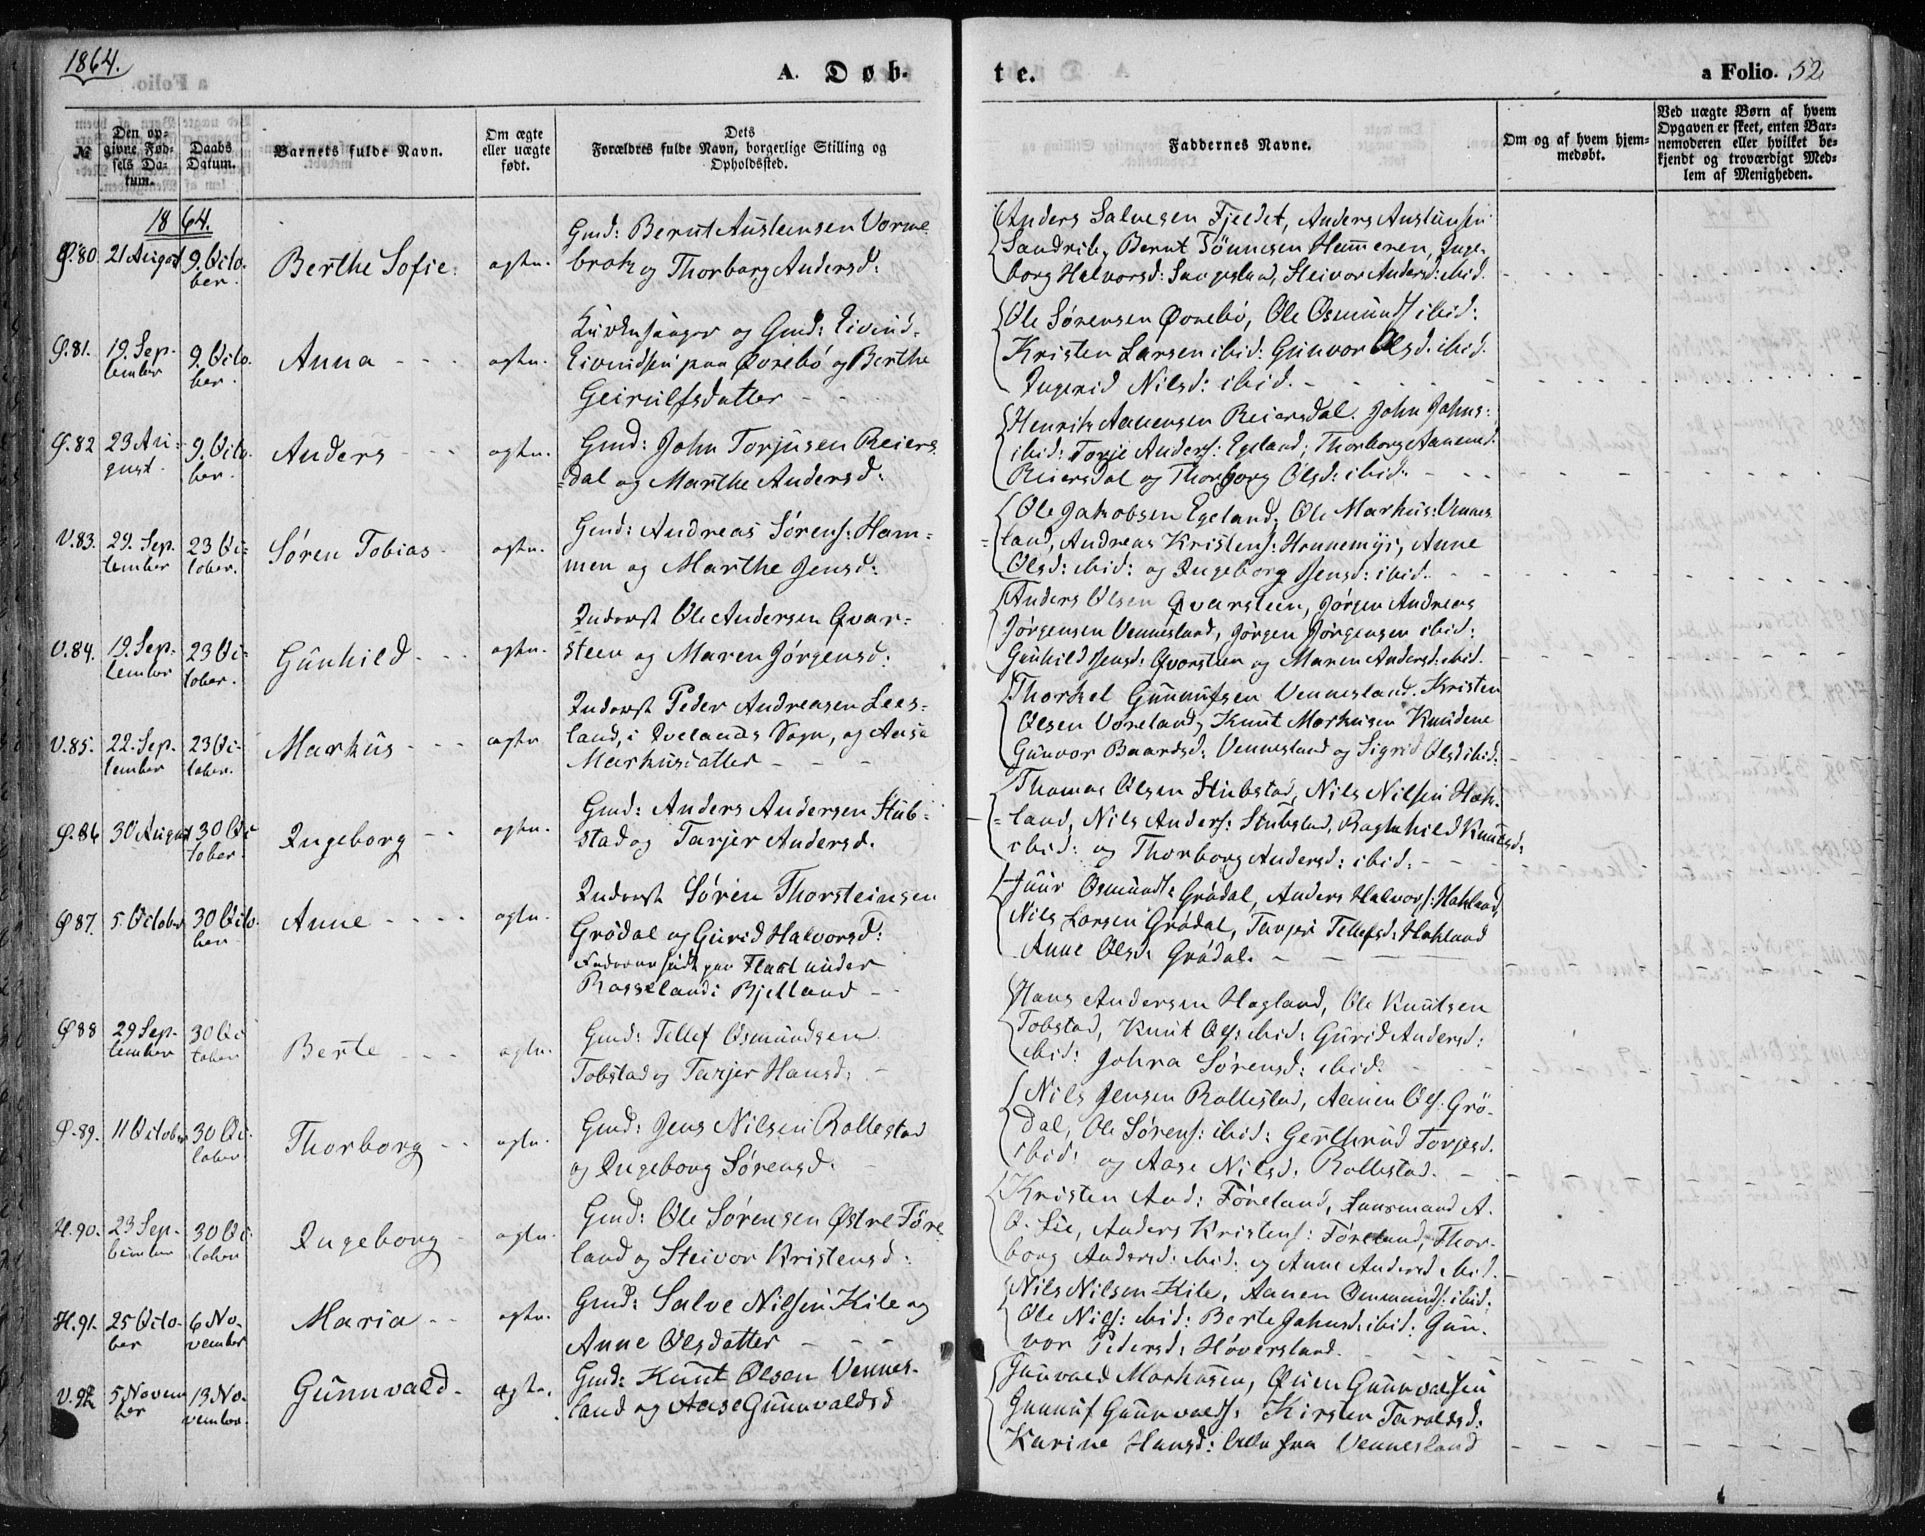 1864.
A. Døb-
te.
a Folio. 52
№
Den op-
givne Fød-
sels Da-
tum.
Daabs
Datum.
Barnets fulde Navn.
Om ægte
eller uægte
født.
Dets
Forældres fulde Navn, borgerlige Stilling og
Opholdssted.
Faddernes Navne.
Om og af hvem hjem-
medøbt.
Ved uægte Børn af hvem
Opgaven er skeet, enten Bar-
nemoderen eller hvilket be-
kjendt og troværdigt Med-
lem af Menigheden.
1864.
Ø.80. 21 August 9. Octo-
ber.
Berthe Sofie.
ægte.
Gmd: Bernt Austeinsen Vorme
brok og Thorborg Andersd:
Anders Salvesen Fjeldet, Anders Austensen
Sandrib, Bernt Tönnesen Hommeren, Inge-
borg Halvorsd: Sangesland, Steivor Andersd: ibid.
Ø.81. 19. Sep-
tember
9. Octo-
ber.
Anna
ægte.
Kirkesanger og Gmd: Eivind
Eivindsen paa Øvrebö og Berthe
Geirulfsdatter
Ole Sørensen Øvrebö, Ole Osmunds: ibid:
Kristen Larsen ibid: Gunvor Olsd: ibid.
Ingerid Nilsd: ibid.
Ø.82 23 Au-
gust.
9. Octo-
ber.
Anders
ægte.
Gmd: John Torjusen Reiers
=dal og Marthe Andersd:
Henrik Aanensen Reiersdal. John Johns:
ibid: Torje Anders: Egeland, Thorborg Aanensd:
Reiersdal og Thorborg Olsd: ibid:
V.83. 29. Sep-
tember
23 Oc-
tober.
Søren Tobias
ægte.
Gmd: Andreas Sørens: Ham=
men og Marthe Jensd:
Ole Jakobsen Egeland, Ole Markus: Vennes
=land, Andreas Kristens: Honnemyr, Anne
Olsd: ibid: og Ingeborg Jensd: ibid.
V.84. 19. Sep-
tember
23 Oc-
tober.
Gunhild
ægte.
Inderst Ole Andersen Qvar=
steen og Maren Jørgensd:
Anders Olsen Qvarsteen, Jørgen Andreas
Jørgensen Vennesland, Jörgen Jörgensen ibid:
Gunhild Jensd: Qvarsteen og Maren Andersd: ibid.
V.85. 22. Sep-
tember
23 Oc-
tober.
Markus
ægte
Inderst Peder Andreasen Lees=
land, i Ivelands Sogn, og Anne
Markusdatter
Thorkel Gunnufsen Vennesland. Kristen
Olsen Voreland, Knut Markusen Knudene
Gunvor Baardsd: Vennesland og Sigrid Olsd ibid:
Ø.86 30 August 30 Oc-
tober.
Ingeborg
ægte.
Gmd: Anders Andersen Stub=
stad og Tarjer Andersd.
Thomas Olsen Stubstad, Nils Nilsen Hok-
=land, Nils Anders: Stubstad, Ragnhild Knutsd:
ibid: og Thorborg Andersd: ibid:
Ø 87. 5 October 30 Octo-
ber
Anne
ægte.
Inderst Søren Thorsteinsen
Grödal og Gurid Halvorsd:
Faderen född paa Flaat under
Rosseland i Bjelland
Juur Osmunds: Grödal, Anders Halvors: Hokland,
Nils Larsen Grödal, Tarjer Tellefsd: Hokland
Anne Olsd: Grödal.
Ø 88 29 Sep-
tember
30 Oc-
tober
Berte
ægte.
Gmd: Tellef Osmundsen
Tobstad og Tarjer Hansd:
Hans Andersen Hagland, Ole Knutsen
Tobstad, Knut Ols: ibid: Gurid Andersd:
ibid: Johra Sörensd: ibid.
Ø.89. 11 October 30 Oc-
tober
Thorborg
ægte.
Gmd: Jens Nilsen Rollestad
og Ingeborg Sørensd.
Nils Jensen Rollestad, Aanen Ols. Grö-
dal, Ole Sörens: ibid: Gerthrud Torjesd.
ibid: og Aase Nilsd: Rollestad.
H.90. 23 Sep-
tember
30 Oc-
tober
Ingeborg
ægte.
Gmd: Ole Sørensen Østre Före
land og Steivor Kristensd:
Kristen And: Föreland, Lensmand A.
O. Lie, Anders Kristens: Föreland, Thor-
borg Andersd: ibid: og Anne Andersd: ibid.
H.91. 25 Octo-
ber
6 No-
vember
Maria
ægte.
Gmd: Salve Nilsen Kile og
Anne Olsdatter
Nils Nilsen Kile, Aanen Ommunds: ibid:
Ole Nils: ibid: Berte Johnsd: ibid: Gun-
vor Pedersd: Höversland.
V.92 5 Novem
ber
13 No-
vember.
Gunnvald
ægte.
Gmd: Knut Olsen Vennes-
land og Aase Gunnvaldsd
Gunvald Markusen, Ouen Gunnvalsen
Gunnuf Gunnvalds: Kirsten Taraldsd:
Karine Hansd: Alle fra Vennesland